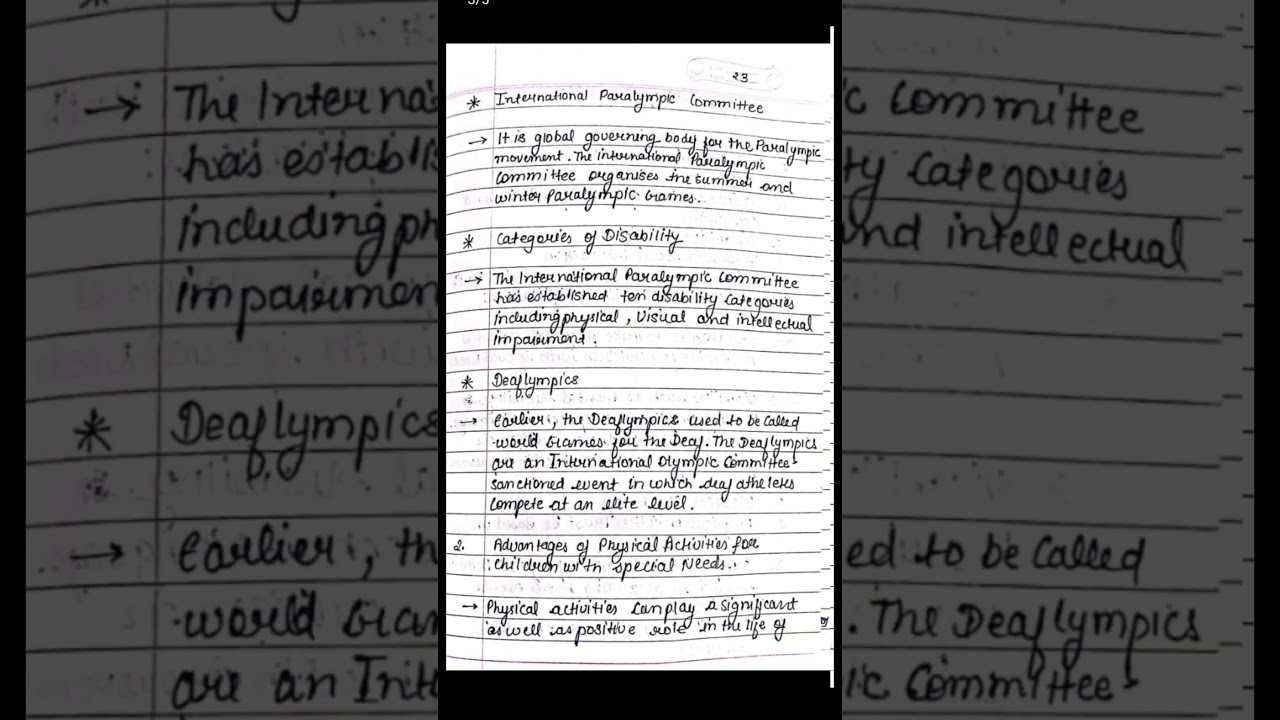 23
* International Paralympic Committee
→ It is global governing body for the Paralympic
movement. The international Paralympic
Committee organises the summer and
winter Paralympic Games..
* Categories of Disability
→ The International Paralympic Committee
has established ten disability categories
including physical, Visual and intellectual
impairment.
* Deaflympics
→ Earlier, the Deaflympics used to be called
world Games for the Deaf. The Deaflympics
are an International Olympic Committee
sanctioned event in which deaf atheletes
compete at an elite level.
2. Advantages of Physical Activities for
children with special Needs..
→ Physical activities can play a significant
as well as positive role in the life of